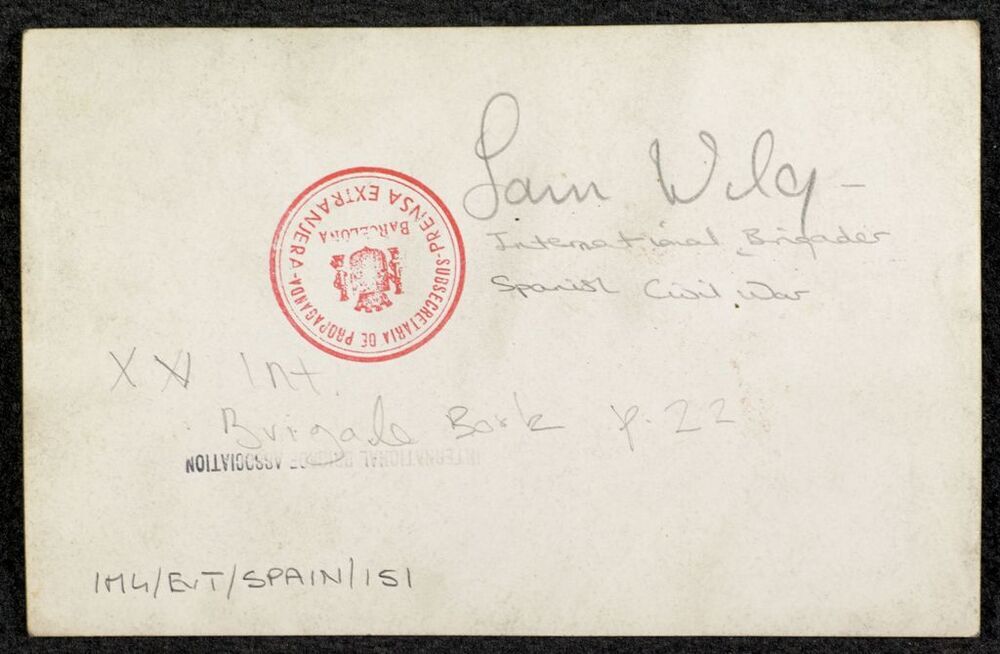 Sam Wild -
International Brigader
Spanish Civil War
SUBSECRETARIA DE PROPAGANDA-PRENSA EXTRANJERA-
BARCELONA
XV Int
Brigade Book p.22
INTERNATIONAL BRIGADE ASSOCIATION
IML/EvT/SPAIN/151